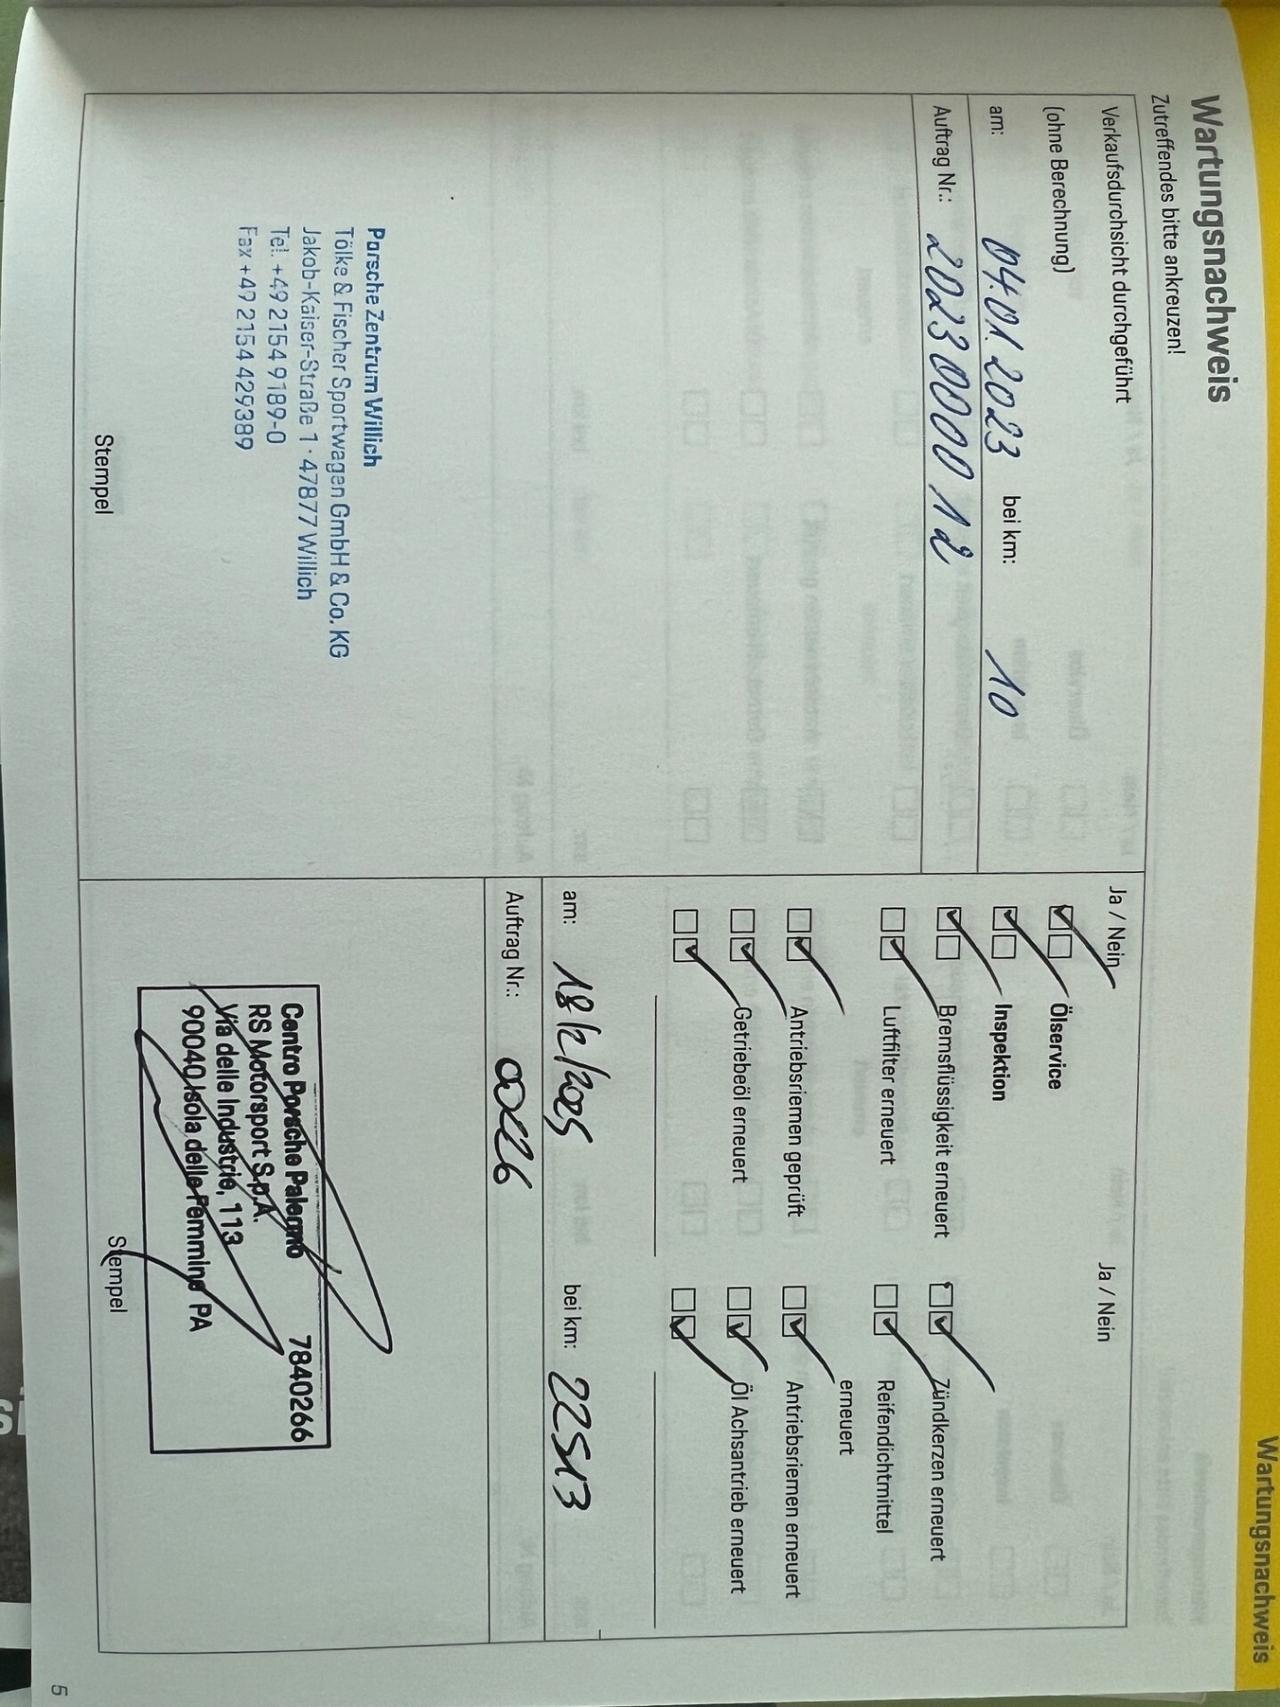 Wartungsnachweis
Wartungsnachweis
Zutreffendes bitte ankreuzen!
Verkaufsdurchsicht durchgeführt
(ohne Berechnung)
am: 04.01.2023 bei km: 10
Auftrag Nr.: 2023 0000 12
Porsche Zentrum Willich
Tölke & Fischer Sportwagen GmbH & Co. KG
Jakob-Kaiser-Straße 1 · 47877 Willich
Tel. +49 2154 9189-0
Fax +49 2154 429389
Stempel
Ja / Nein
Ölservice
Inspektion
Bremsflüssigkeit erneuert
Luftfilter erneuert
Antriebsriemen geprüft
Getriebeöl erneuert
Ja / Nein
Zündkerzen erneuert
Reifendichtmittel
erneuert
Antriebsriemen erneuert
Öl Achsantrieb erneuert
am: 18/2/2025 bei km: 22513
Auftrag Nr.:
Centro Porsche Palermo 7840266
RS Motorsport S.p.A.
Via delle Industrie, 113
90040 Isola delle Femmine PA
Stempel
5